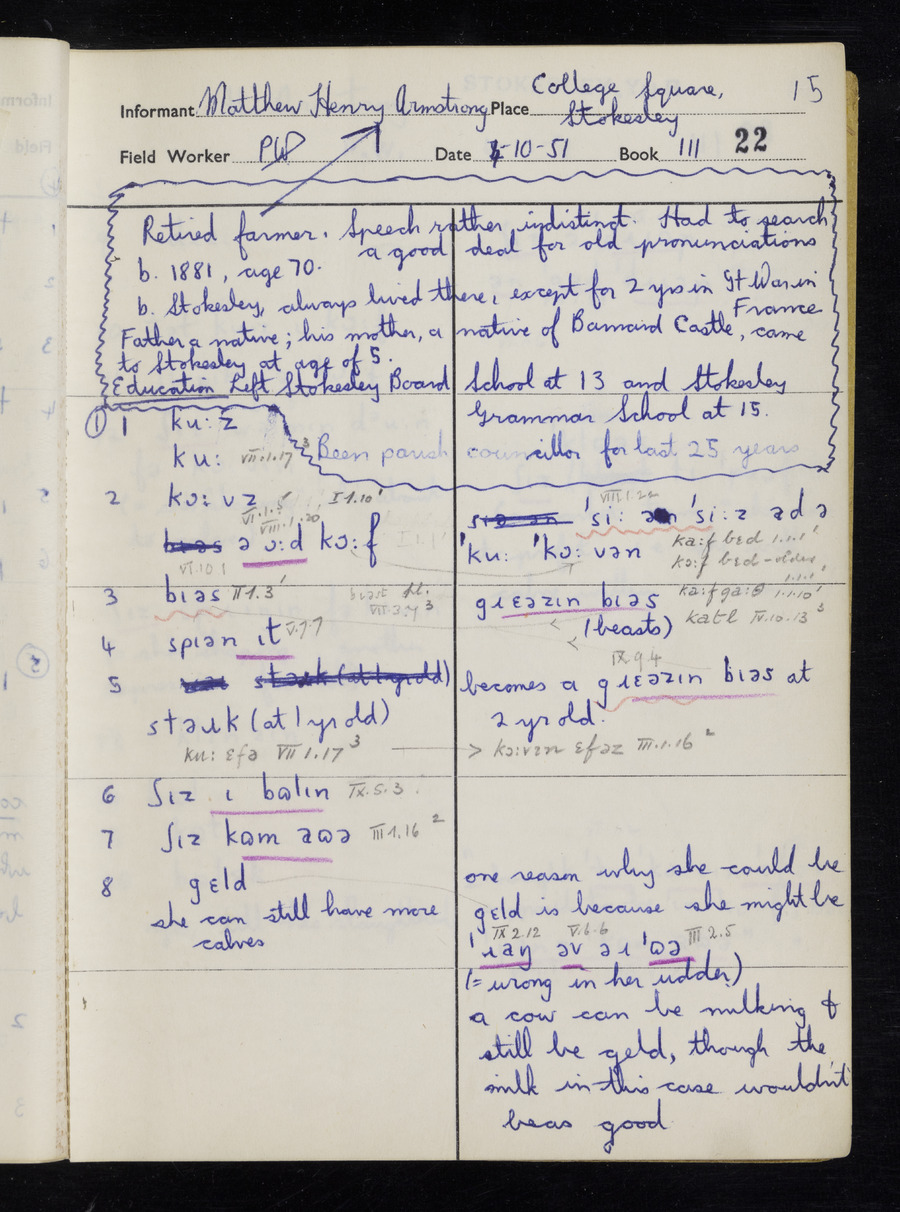 15
Informant Matthew Henry Armstrong Place College Square,
Stokesley
Field Worker PW Date 4-10-51 Book III 22
Retired farmer. Speech rather indistinct. Had to search
a good deal for old pronunciations
b. 1881, age 70.
b. Stokesley, always lived there, except for 2 yrs in Gt War in
France
Father a native; his mother, a native of Barnard Castle, came
to Stokesley at age of 5.
Education Left Stokesley Board School at 13 and Stokesley
Grammar School at 15.
Been parish councillor for last 25 years
① 1 ku:z
ku: VII.1.17³
2 kɔ:vz I.1.10'
VI.1.5
VIII.1.20
ə ɔ:d kɔ:f
VI.10.1
VIII.1.22
'si: 'si:z əd ə
'ku: 'kɔ:vən
ka:f bɛd 1.1.1'
kɔ:f bɛd - older
1.1.1'
3 bɪəs II.1.3'
VIII.3.7³
gɹɛəzɪn bɪəs
ka:f ga:θ 1.1.10'
(beasts)
katl IV.10.13³
4 spɪən ɪt V.7.7
IX.9.4
5 stəɹk (at 1 yr old)
stəɹk (at 1 yr old)
becomes a gɹɛəzɪn bɪəs at
2 yr old.
ku: ɛfə VII.1.17³ → kɔ:vɪn ɛfəz III.1.16²
6 ʃɪz ɪ bɷlɪn IX.5.3
7 ʃɪz kɷm əɷə III.1.16²
8 gɛld
she can still have more
calves
one reason why she could be
gɛld is because she might be
IX.2.12 V.6.6 III.2.5
'ɹaŋ əv əɹ 'ɷə
(= wrong in her udder)
a cow can be milking &
still be geld, though the
milk in this case wouldn't
be as good